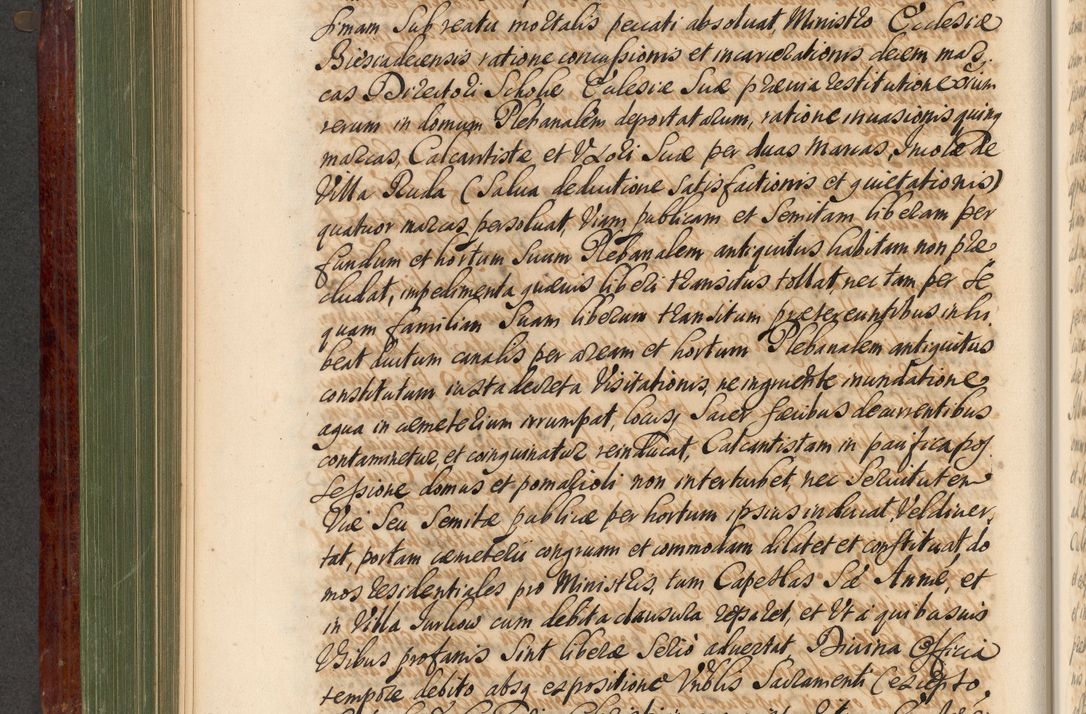 simam sub reatu mortalis peccati absoluat, Ministro Ecclesiæ
Biescadecensis ratione concussionis et incarcerationis decem mar,
cas Directori Scholæ Ecclesiæ Suæ præuia restitutione
rerum in domum Plebanalem deportatarum, ratione inuasionis quinq
marcas, Calcantistæ, et Vxori Suæ per duas Marcas, Incolæ de
Villa Ruda (Salua deductione Satisfactionis et quietationis)
quatuor marcas persoluat, Viam publicam et Semitam liberam per
fundum et hortum Suum Plebanalem antiquitus habitam non præ
cludat, impedimenta quæuis liberi transitus tollat, nec tam per Se
quam familiam Suam liberum transitum prætereuntibus inhi
beat ductum canalis per aream et hortum Plebanalem antiquitus
constitutum iuxta decreta Visitationis, ne ingruente inundatione
aqua in cæmeterium irrumpat, locus Sacer fæcibus decurrentibus
contaminetur, et coinquinatur reinducat, Calcantistam in pacifica pos
sessione domus et pomarioli non interturbet, nec Seruitutem
Viæ Seu Semitæ publicæ per hortum ipsius inducat, Vel diuer,
tat, portam cæmeterii congruam et commodam dilatet et constituat, do
mos residentiales pro Ministris, tam Capellæ Sæ Annæ, et
in Villa Jurkow cum debita clausula reparet, et Vt a quibusuis
Vsibus profanis Sint liberæ Serio aduertat, Diuina Officia
tempore debito absq expositione Vnblis Sacramenti (excepto